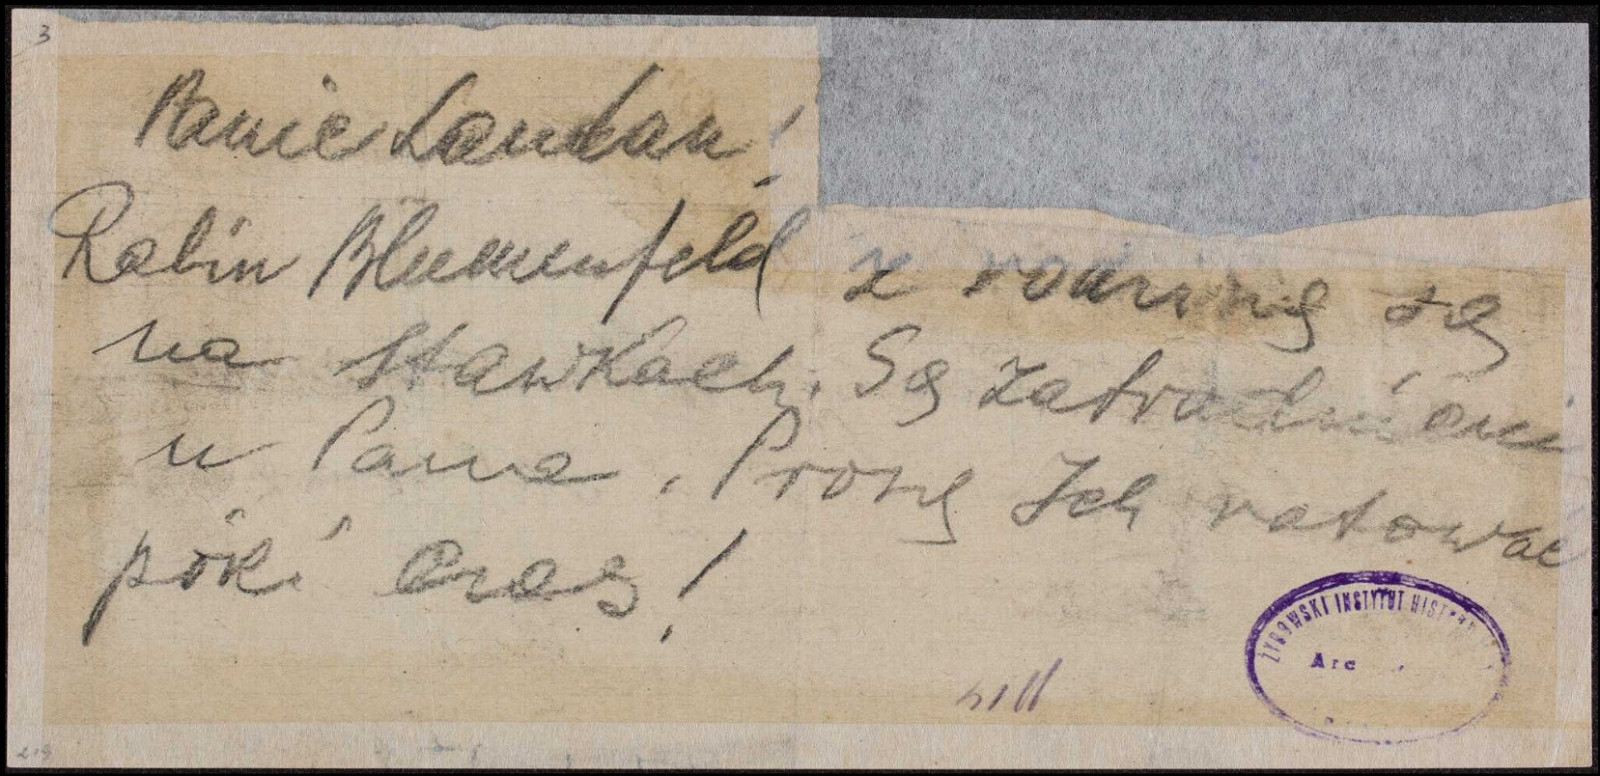 3
Panie Landau!
Rabin Blumenfeld z rodziną są
na Stawkach. Są zatrudnieni
u Pana. Proszę Ich ratować
póki czas!
ŻYDOWSKI INSTYTUT HIST
Arc
219